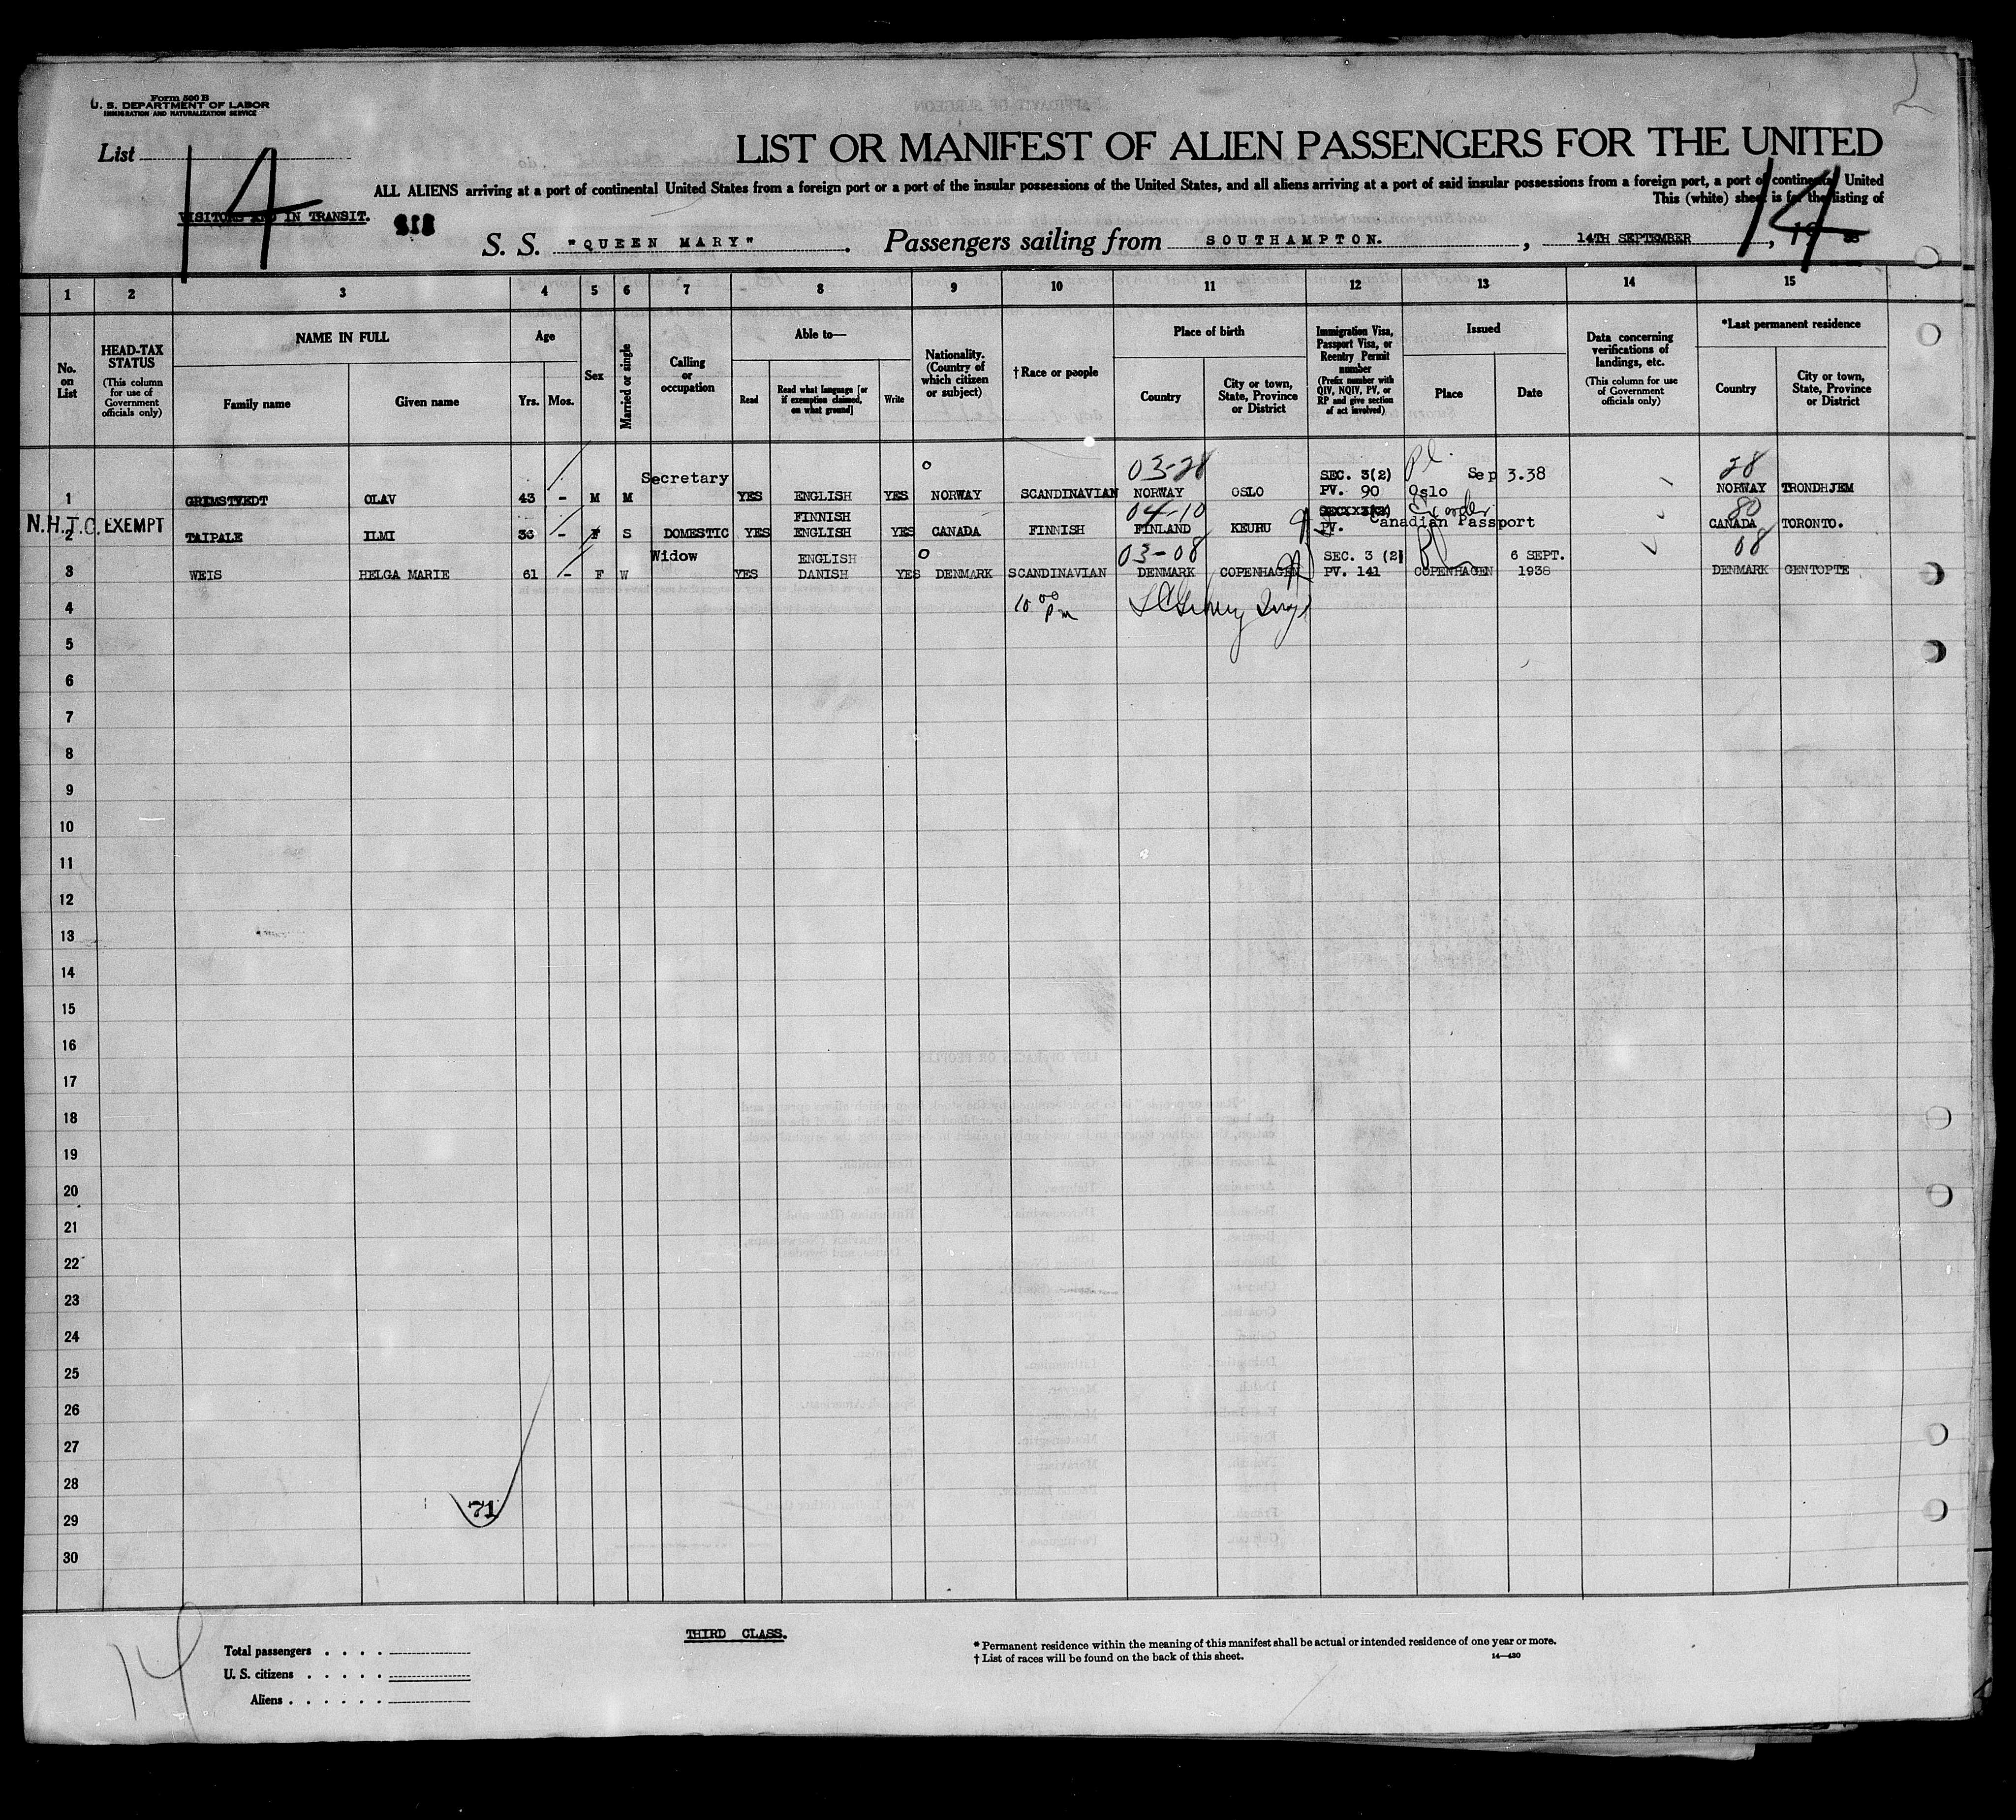 Form 500 B
U. S. DEPARTMENT OF LABOR
IMMIGRATION AND NATURALIZATION SERVICE
List 14
LIST OR MANIFEST OF ALIEN PASSENGERS FOR THE UNITED
ALL ALIENS arriving at a port of continental United States from a foreign port or a port of the insular possessions of the United States, and all aliens arriving at a port of said insular possessions from a foreign port, a port of continental United
This (white) sheet is for the listing of
14
VISITORS AND IN TRANSIT.
S. S. "QUEEN MARY". Passengers sailing from SOUTHAMPTON. , 14TH SEPTEMBER , 19 38
1 2 3 4 5 6 7 8 9 10 11 12 13 14 15
No. on List
HEAD-TAX STATUS
(This column for use of Government officials only)
NAME IN FULL
Family name
Given name
Age
Yrs. Mos.
Sex
Married or single
Calling or occupation
Able to—
Read
Read what language [or if exemption claimed, on what ground]
Write
Nationality. (Country of which citizen or subject)
†Race or people
Place of birth
Country
City or town, State, Province or District
Immigration Visa, Passport Visa, or Reentry Permit number
(Prefix number with QIV, NQIV, PV, or RP and give section of act involved)
Issued
Place
Date
Data concerning verifications of landings, etc.
(This column for use of Government officials only)
*Last permanent residence
Country
City or town, State, Province or District
Secretary 03-28 SEC. 3(2) Sep 3.38 28
1 GRIMSTVEDT OLAV 43 - M M YES ENGLISH YES NORWAY SCANDINAVIAN NORWAY OSLO PV. 90 Oslo NORWAY TRONDHJEM
FINNISH 04-10 80
N.H.T.C. EXEMPT
2 TAIPALE ILMI 36 - F S DOMESTIC YES ENGLISH YES CANADA FINNISH FINLAND KEURU PV. Canadian Passport CANADA TORONTO.
Widow ENGLISH 03-08 SEC. 3 (2) 6 SEPT. 08
3 WEIS HELGA MARIE 61 - F W YES DANISH YES DENMARK SCANDINAVIAN DENMARK COPENHAGEN PV. 141 COPENHAGEN 1938 DENMARK GENTOPTE
4 10 00 Pm
5
6
7
8
9
10
11
12
13
14
15
16
17
18
19
20
21
22
23
24
25
26
27
28
71
29
30
14
THIRD CLASS.
Total passengers . . . .
U. S. citizens . . . . .
Aliens . . . . . .
* Permanent residence within the meaning of this manifest shall be actual or intended residence of one year or more.
† List of races will be found on the back of this sheet.
14—430